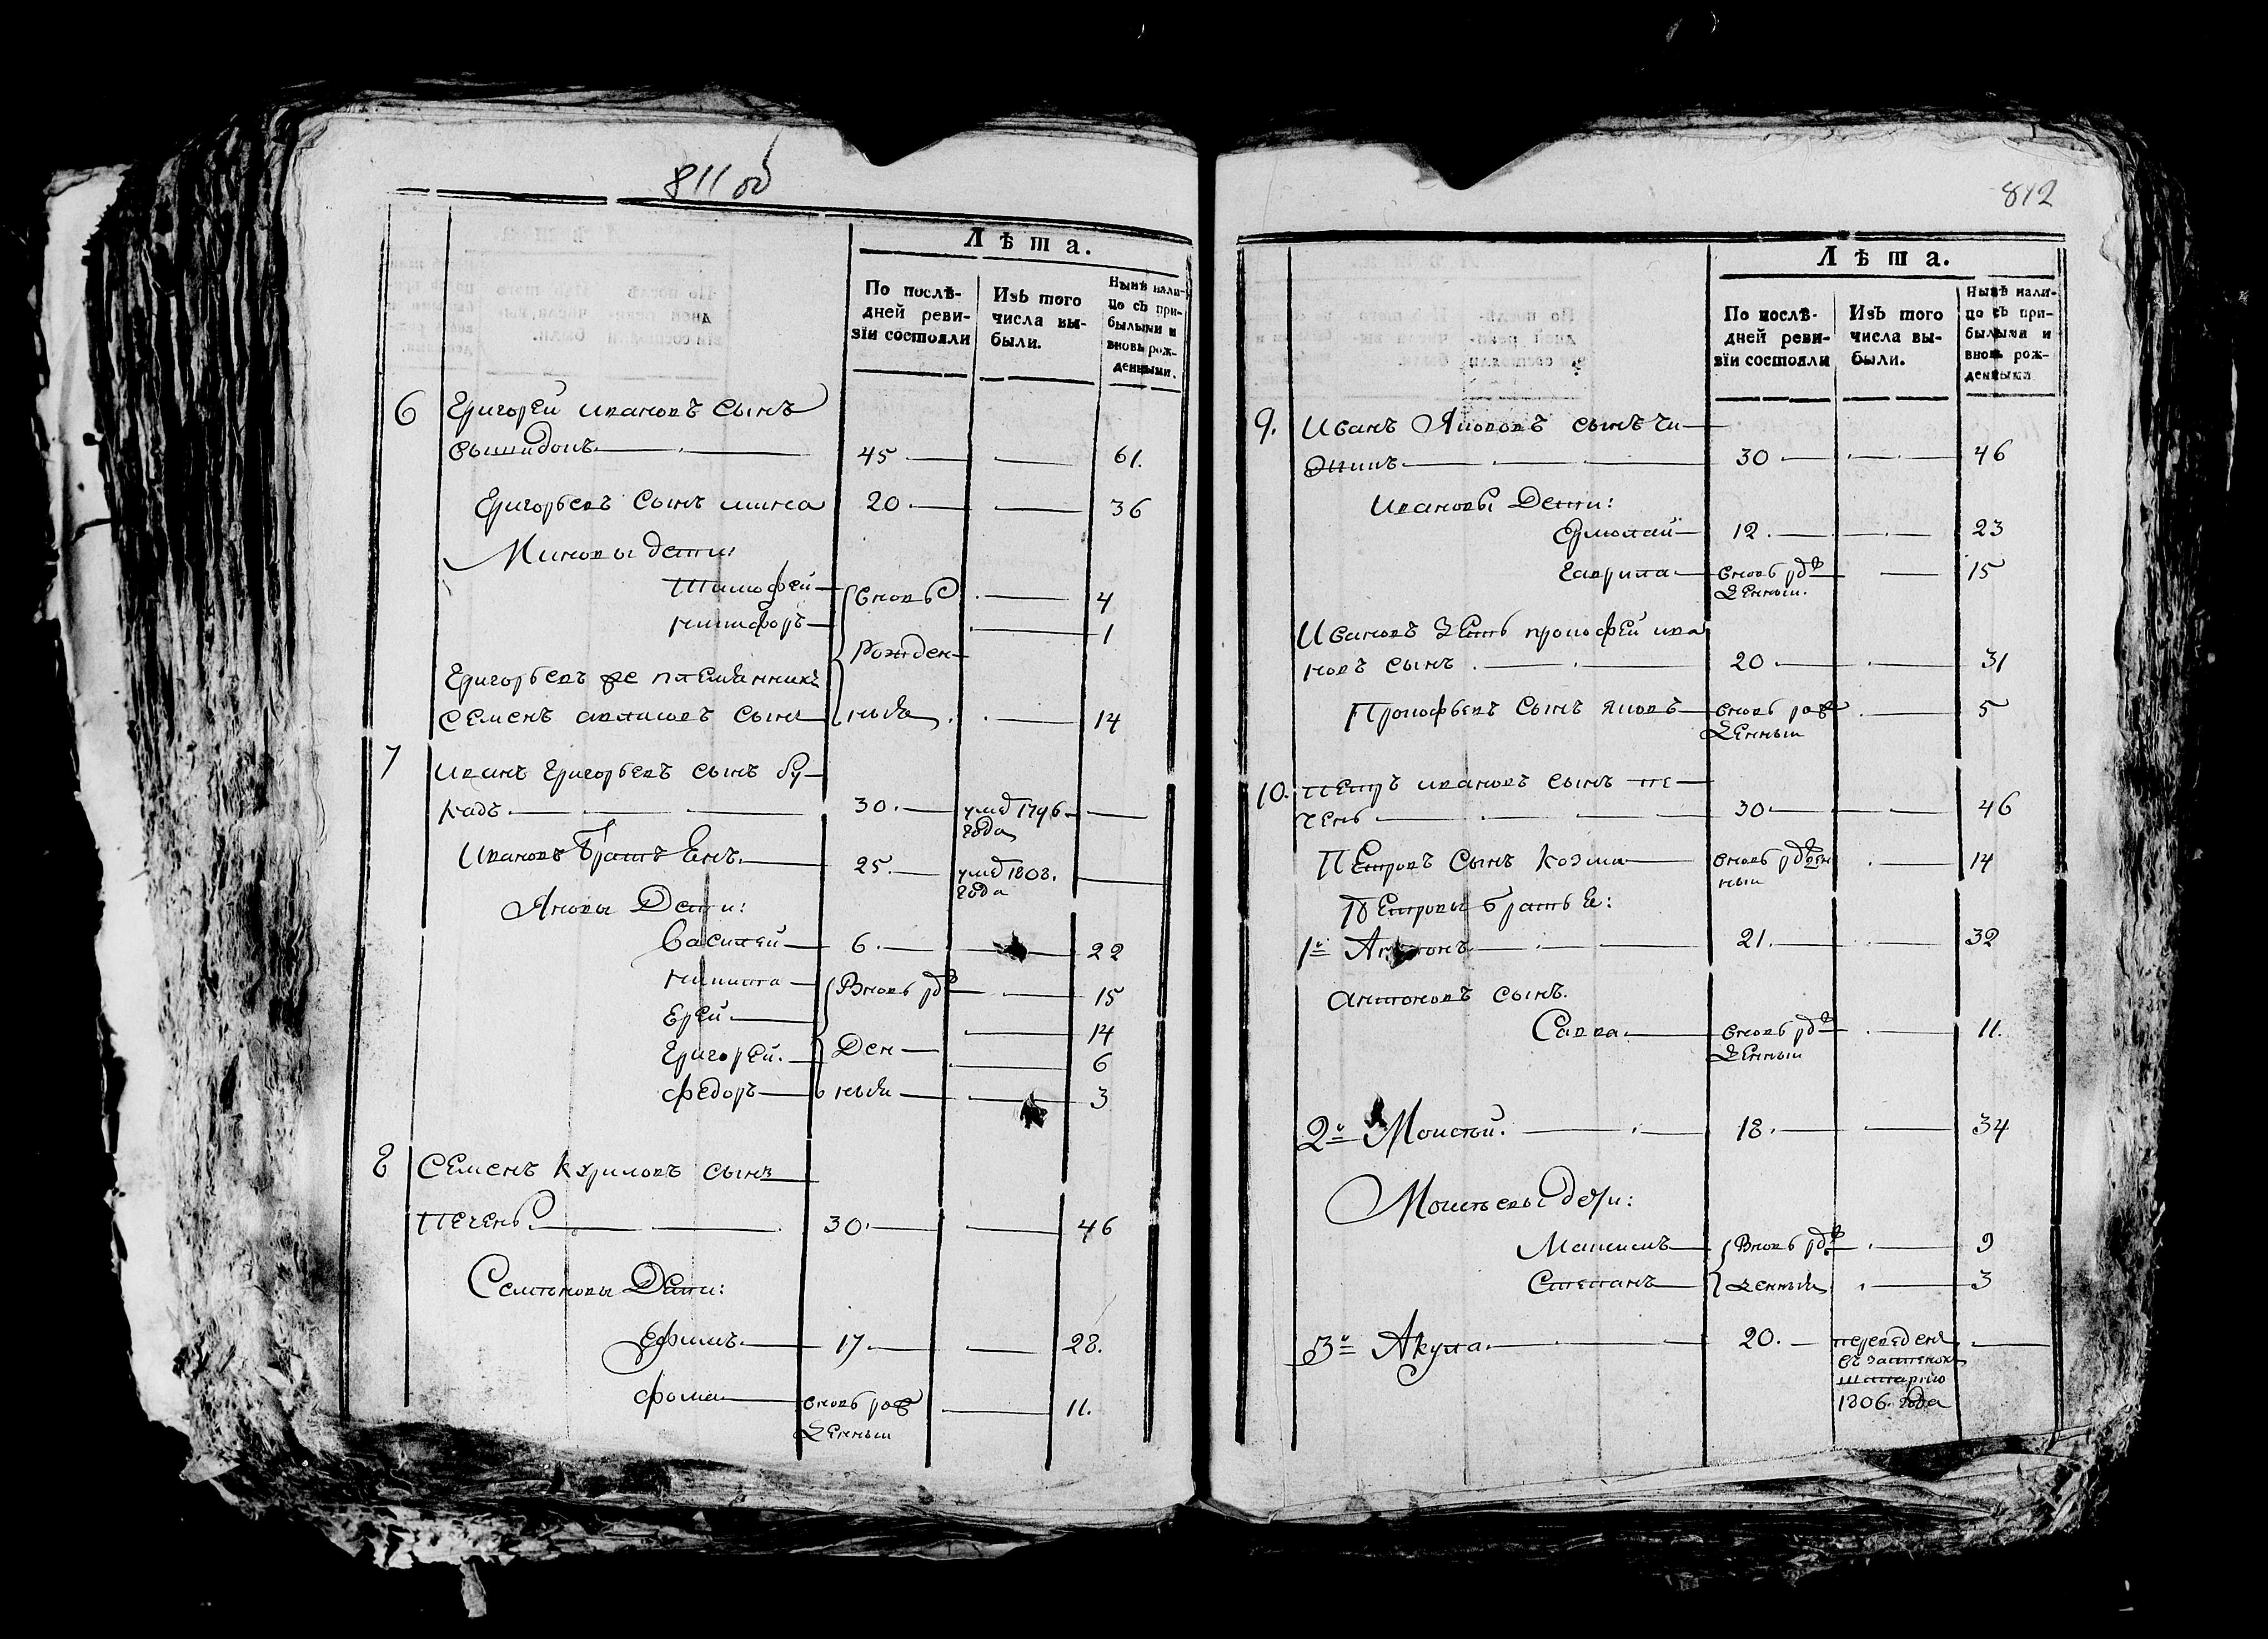 811 об
Лѣта.
По послѣ-
дней реви-
зїи состояли
Изъ того
числа вы-
были.
Нынѣ нали-
цо съ при-
былыми и
вновь рож-
денными.
6 Григорей ивановъ сынъ
45 — — 61.
Григорьевъ сынъ мина 20 — — 36
Миновы дети:
Тимофей — вновь — 4
никифоръ — — 1
Рожден-
Григорьевъ же племянникъ
Семенъ сынъ ныя — 14
7 иванъ Григорьевъ сынъ бу-
кадъ — 30. — умѣ 1796 — —
года
Ивановъ братъ — 25. — умѣ 1808. —
года
Яновы Дети:
Василей — 6. — — 22
никита — Вновь рож — 15
— 14
Григорей. — Ден — — 6
федоръ — ныя — — 3
8 Семенъ Куриловъ сынъ
печень. — 30. — — 46
Семеновы Дети:
Ефимъ. — 17. — — 28.
фома — вновь рож — 11.
денныи
812
Лѣта.
По послѣ-
дней реви-
зїи состояли
Изъ того
числа вы-
были.
Нынѣ нали-
цо съ при-
былыми и
вновь рож-
денными
9. Иванъ Яковъ сынъ чи-
30 — — 46
Ивановы Дети:
Ермолай — 12. — — 23
Гаврила — вновь рож — 15
денныи.
Ивановъ Зеть прокофей ива
новъ сынъ — 20 — — 31
Прокофьевъ сынъ яковъ — вновь рож — 5
денныи
10. петръ ивановъ сынъ пе-
чень — 30 — — 46
Петровъ сынъ козма — вновь рожден — 14
ныи
Петровы братья:
1й Антонъ — 21. — — 32
антоновъ сынъ.
Савва. — вновь рож — 11.
денныи
2й Моисей. — 18. — — 34
Моисеевы дети:
Максимъ — Вновь рож — 9
Степанъ — денныя — 3
3й Акула. — 20. — переведенъ —
въ застенокъ
1806. года